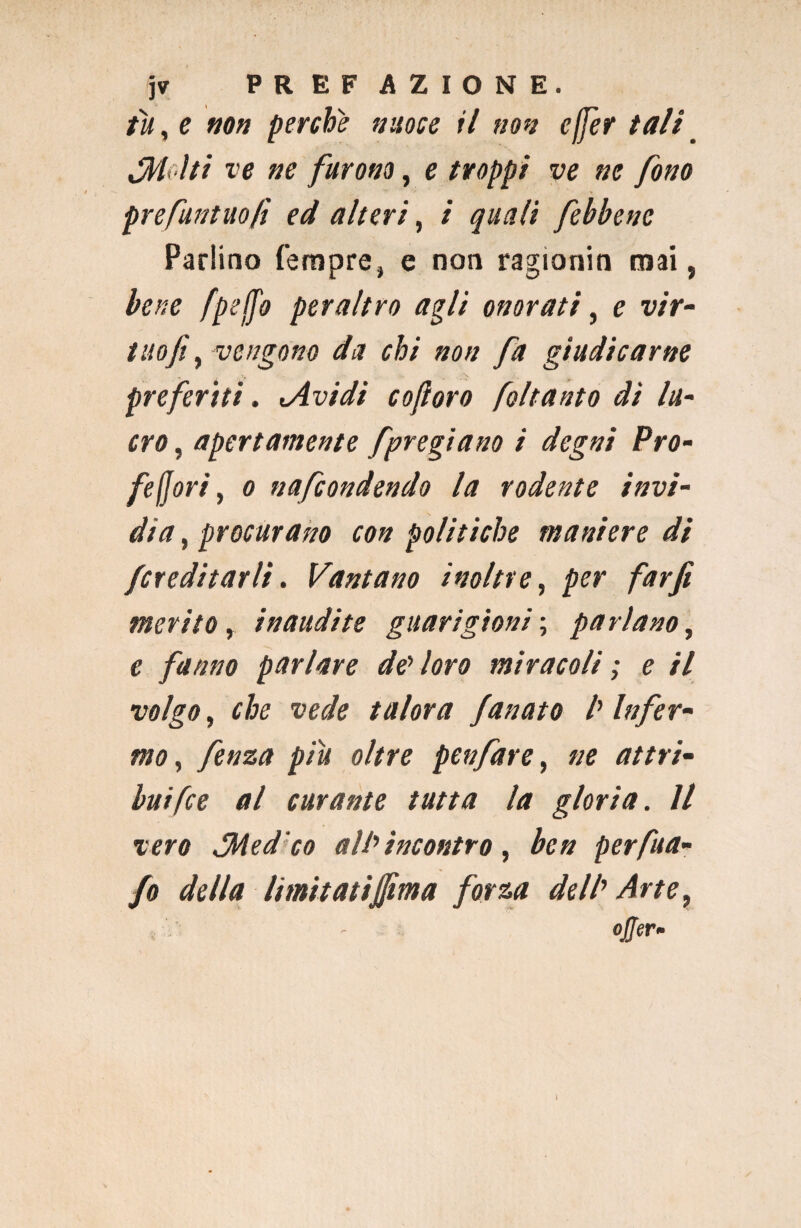 jv PREFAZIONE.
tù, e non perchè nuoce il non eſſer tali.
Molti ve ne furono, e troppi ve ne ſono
preſuntuoſi ed alteri, i quali ſebbene
Parlino ſempre, e non ragionin mai,
bene ſpeſſo peraltro agli onorati, e vir-
tuoſi, vengono da chi non ſa giudicarne
preferiti. Avidi coſtoro ſoltanto di lu-
cro, apertamente ſpregiano i degni Pro-
feſſori, o naſcondendo la rodente invi-
dia, procurano con politiche maniere di
ſcreditarli. Vantano inoltre, per farſi
merito, inaudite guarigioni; parlano,
e fanno parlare de' loro miracoli; e il
volgo, che vede talora ſanato l' Infer-
mo, ſenza più oltre penſare, ne attri-
buiſce al curante tutta la gloria. Il
vero Medico all' incontro, ben perſua-
ſo della limitatiſſima forza dell' Arte,
oſſer-